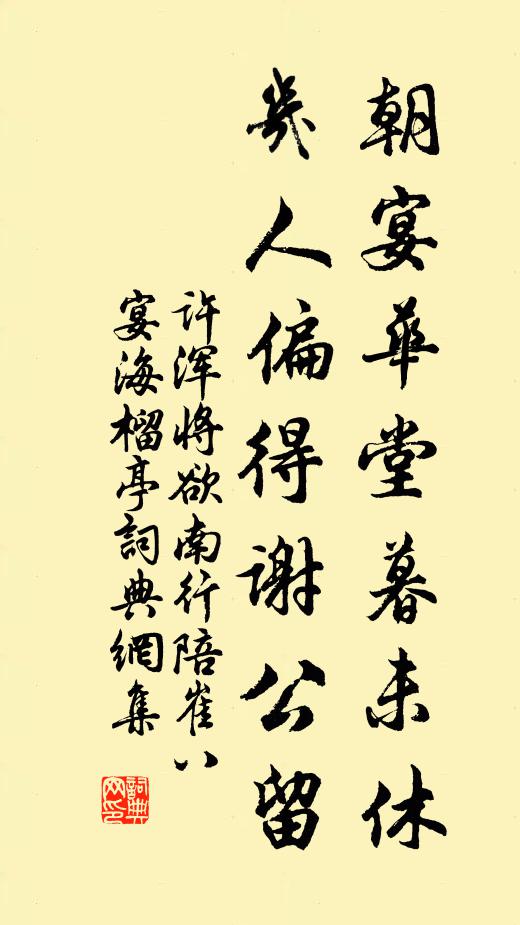 朝宴華堂暮未休
幾人偏得謝公留
許渾將欲南行陪崔八
宴海榴亭詞典網集
詞典
网印